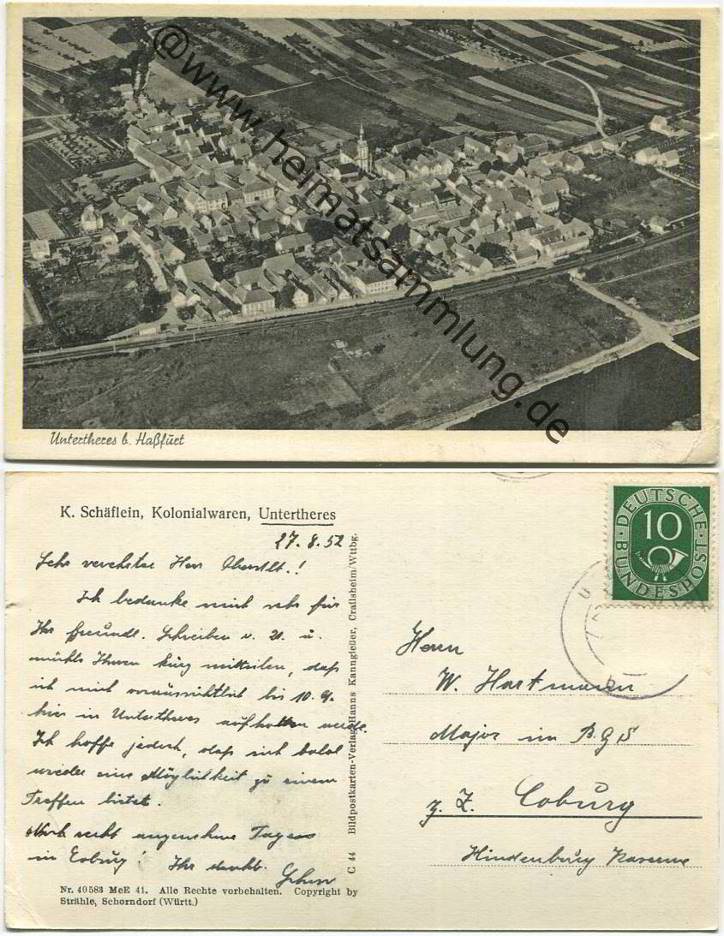 @www.heimatsammlung.de
Untertheres b. Haßfurt
K. Schäflein, Kolonialwaren, Untertheres
27.8.52
Sehr verehrter Herr Oberstlt.!
Ich bedanke mich sehr für
Ihr freundl. Schreiben v. 21. u.
möchte Ihnen kurz mitteilen, daß
ich mich voraussichtlich bis 10.9.
hier in Untertheres aufhalten werde.
Ich hoffe jedoch, daß sich bald
wieder eine Möglichkeit zu einem
Treffen bietet.
Noch recht angenehme Tage
in Coburg! Ihr dankb.
Nr. 40583 MeE 41. Alle Rechte vorbehalten. Copyright by
Strähle, Schorndorf (Württ.)
C 44 Bildpostkarten-Verlag Hanns Kanngießer, Crailsheim/Wttbg.
DEUTSCHE
10
BUNDESPOST
Herrn
W. Hartmann
Major im B.G.S
z. Z. Coburg
Hindenburg Kaserne